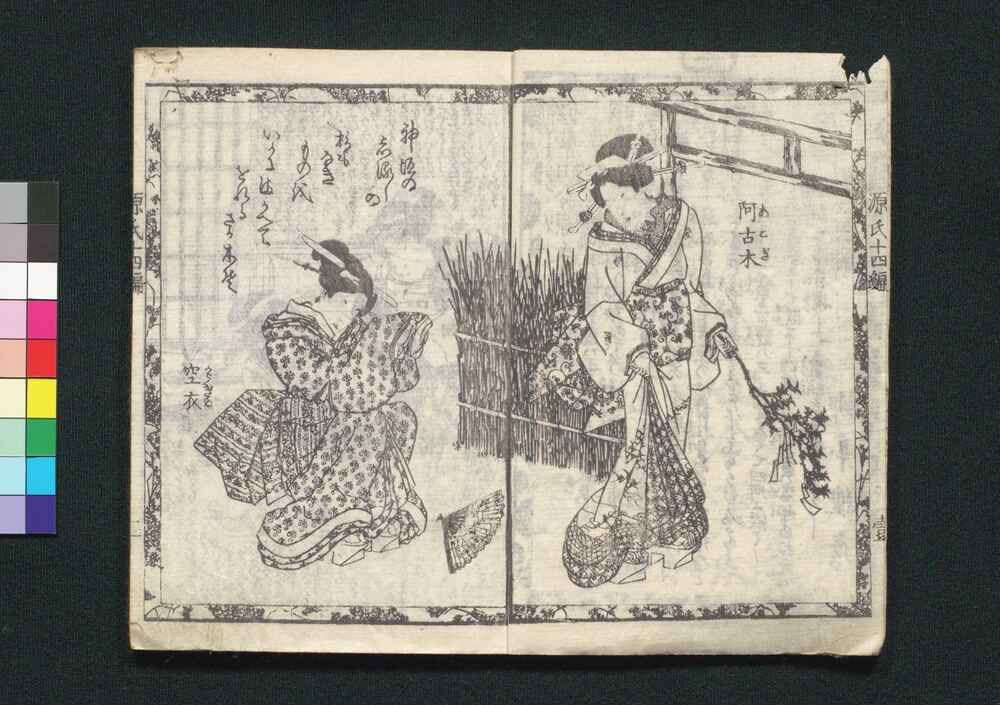 源氏十四編
壹
あこぎ
阿古木
神垣の
しるしの
杉も
なき
ものを
いかにまがへて
をれる
さか木ぞ
空衣
源氏十四編